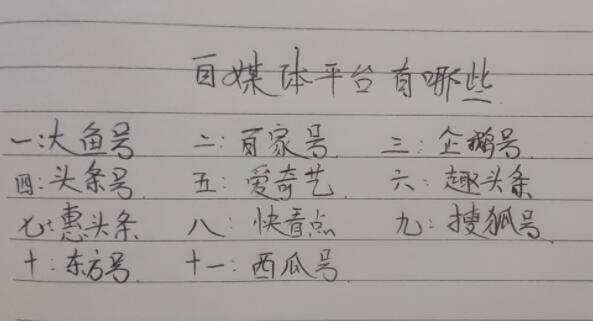 自媒体平台有哪些
一:大鱼号 二:百家号 三:企鹅号
四:头条号 五:爱奇艺 六:趣头条
七:惠头条 八:快看点 九:搜狐号
十:东方号 十一:西瓜号